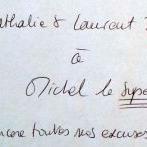 Nathalie & Laurent
à
Michel le Supe
encore toutes nos excuses